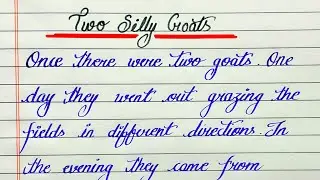 Two Silly Goats
Once there were two goats. One
day they went out grazing the
fields in different directions. In
the evening they came from